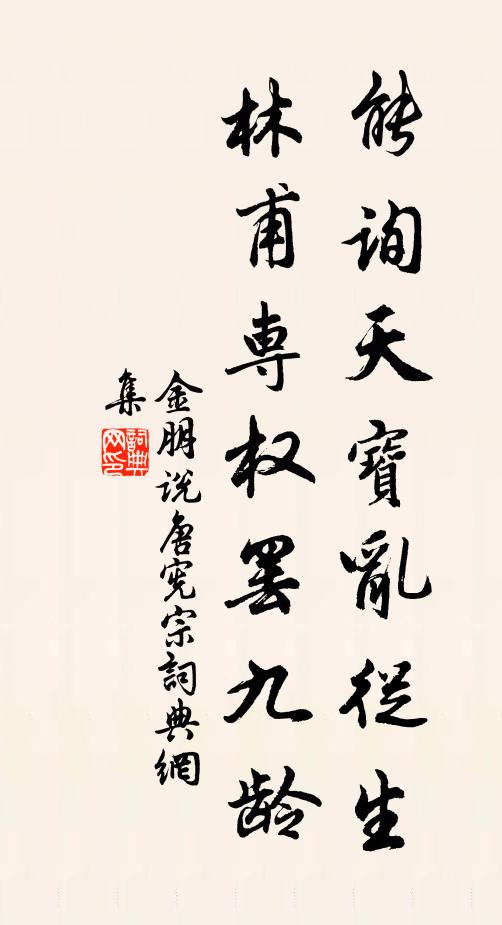 能詢天寶亂從生
林甫専权罢九龄
金朋说唐宪宗詞典網
集
詞典
网印